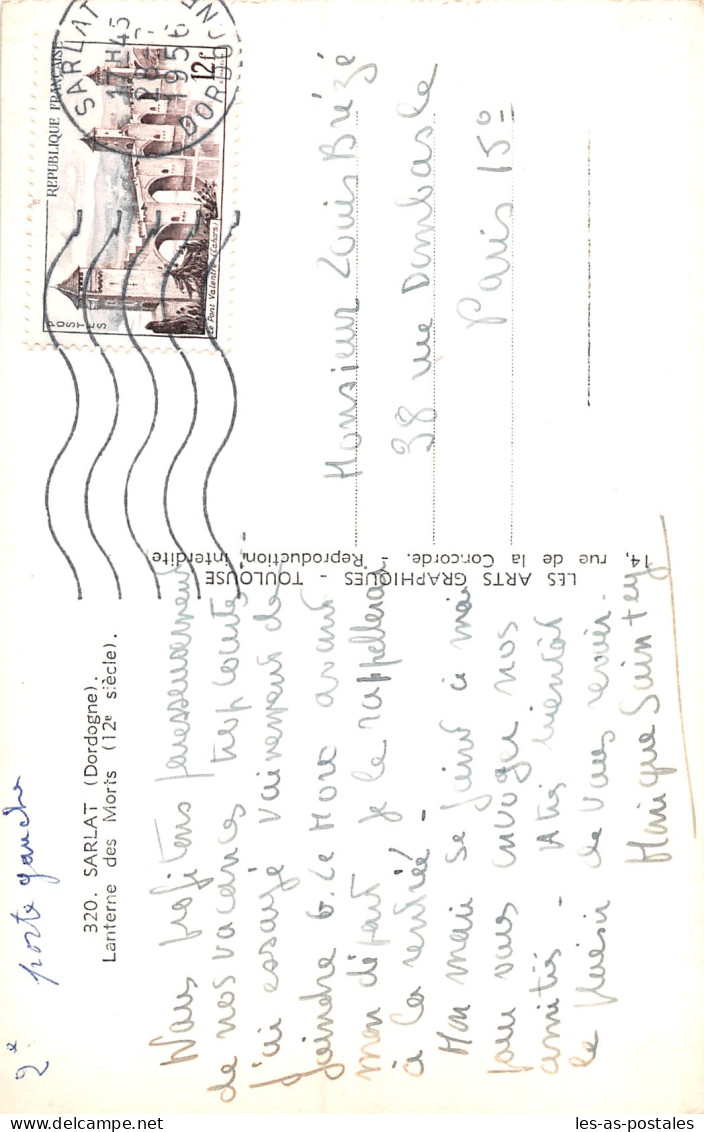 2e porte gauche
320. SARLAT (Dordogne).
Lanterne des Morts (12e siècle).
Nous profitons paresseusement
de nos vacances trop courtes.
J'ai essayé vainement de
joindre G. Le More avant
mon départ je le rappellerai
à la rentrée -
Mon mari se joint à moi
pour vous envoyer nos
amitiés - A très bientôt
le plaisir de vous revoir.
Monique
LES ARTS GRAPHIQUES - TOULOUSE
14, rue de la Concorde. - Reproduction interdite
SARLAT
17H45
28-
1956
DORDOGNE
REPUBLIQUE FRANÇAISE
12F
POSTES
Le Pont Valentré (Cahors)
Monsieur Louis Brézé
38 rue Dombasle
Paris 15°
les-as-postales.com